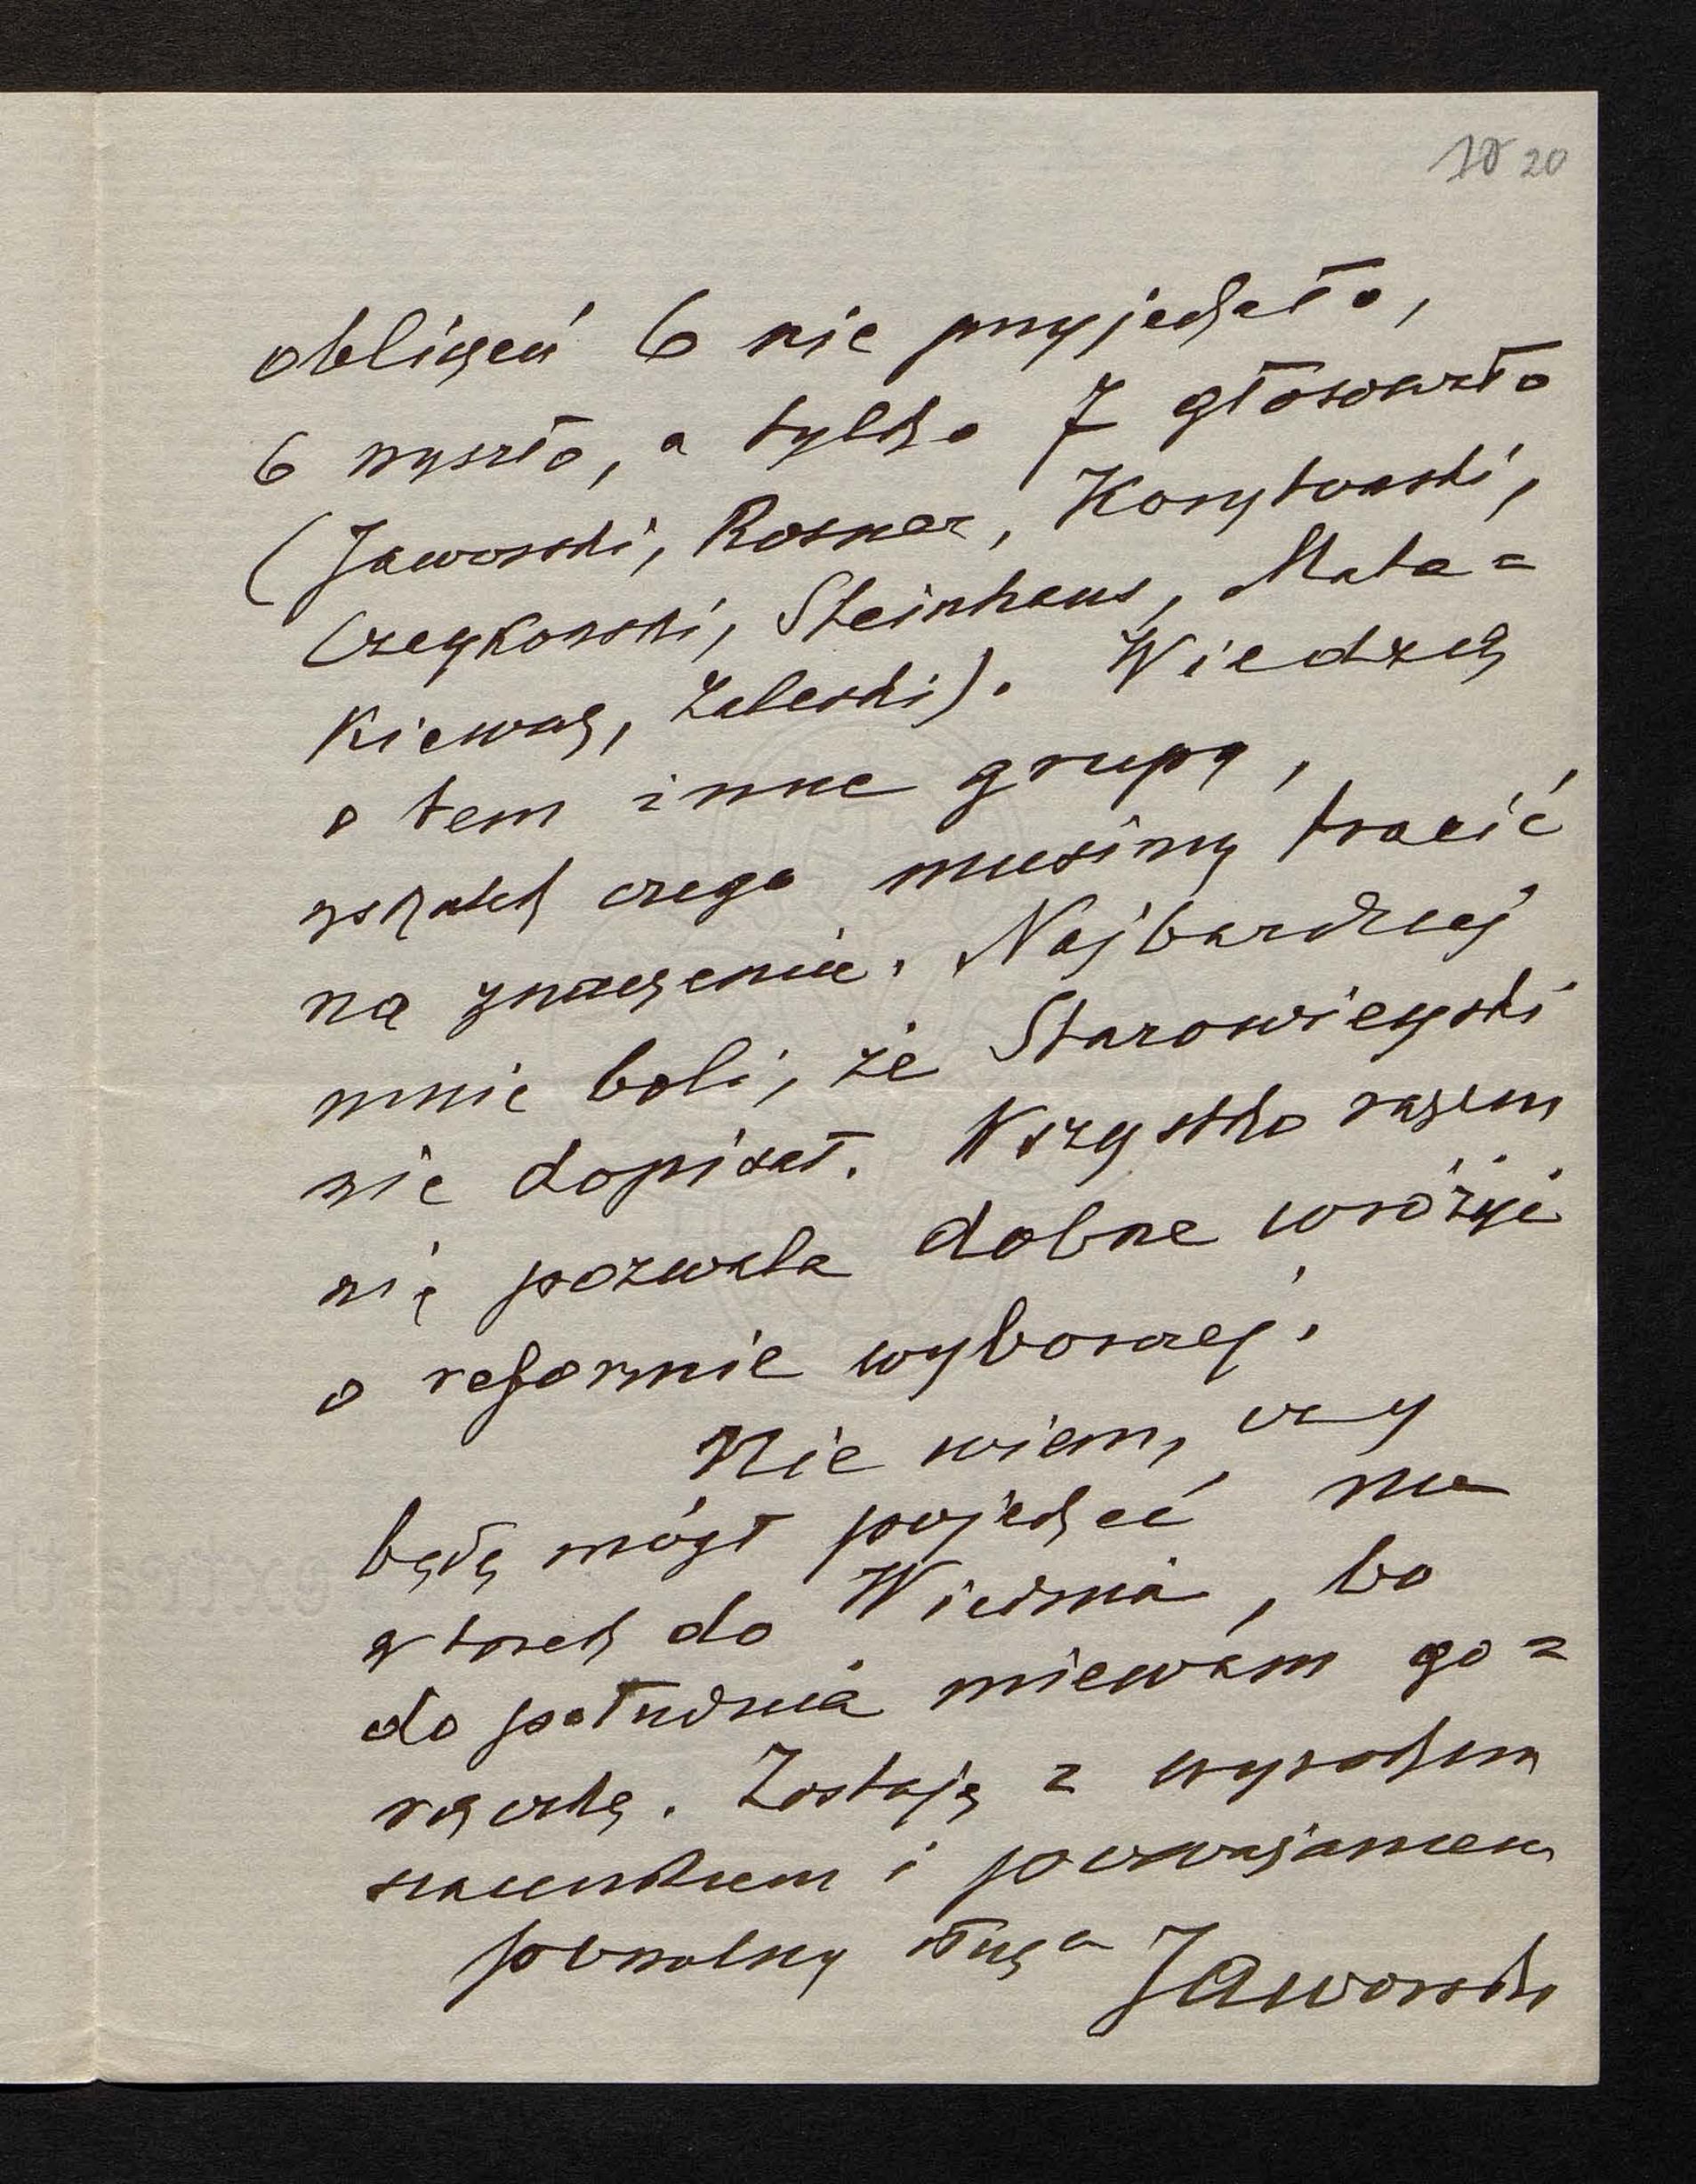 10 20
obliczeń 6 nie przyjechało,
6 wyszło, a tylko 7 głosowało
(Jaworski, Rosner, Korytowski,
Czeykowski, Steinhaus, Mata=
kiewicz, Zaleski). Wiedzą
o tem inne grupy,
wskutek czego musimy tracić
na znaczeniu. Najbardziej
mnie boli, że Starowieyski
nie dopisał. Wszystko razem
nie pozwala dobrze wróżyć
o reformie wyborczej.
Nie wiem, czy
będę mógł pojechać na
wtorek do Wiednia, bo
do południa miewam go=
rączkę. Zostaję z wysokim
szacunkiem i poważaniem
powolny sługa Jaworski